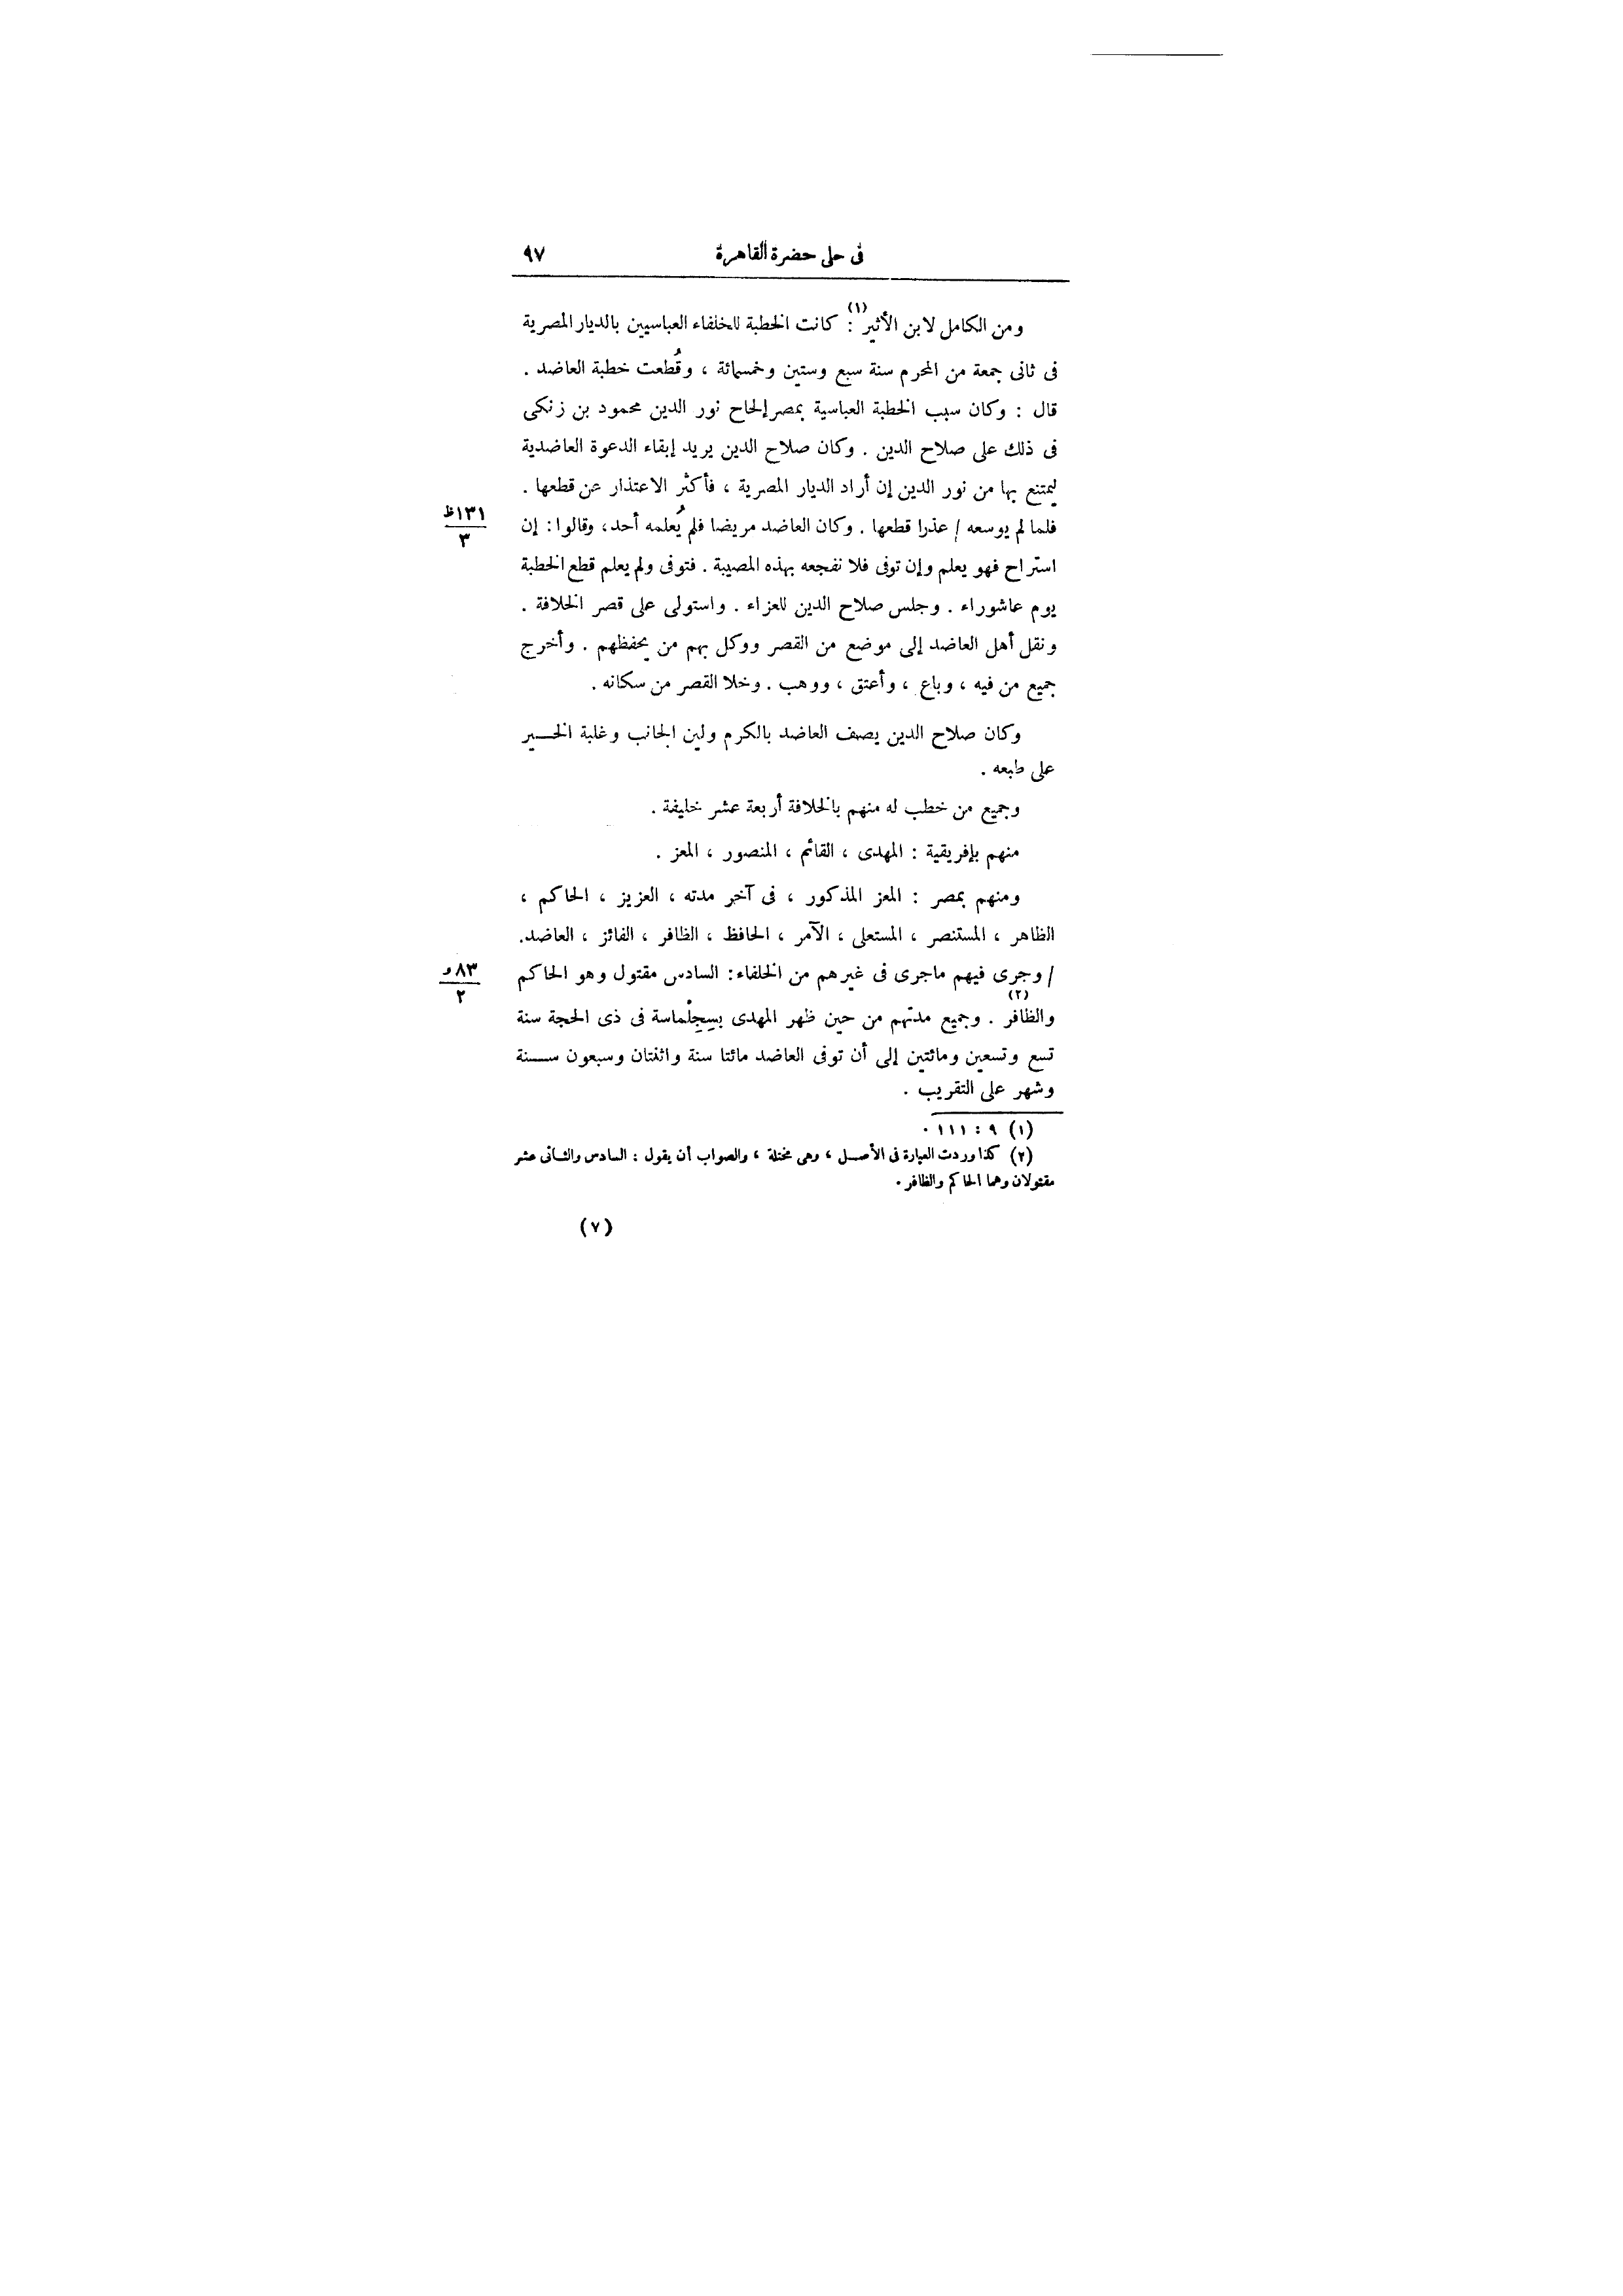 فى حلى حضرة القاهرة ٩٧
ومن الكامل لابن الأثير (١) : كانت الخطبة للخلفاء العباسيين بالديار المصرية
فى ثانى جمعة من المحرم سنة سبع وستين وخمسمائة ، وقُطعت خطبة العاضد .
قال : وكان سبب الخطبة العباسية بمصر إلحاح نور الدين محمود بن زنكى
فى ذلك على صلاح الدين . وكان صلاح الدين يريد إبقاء الدعوة العاضدية
ليمتنع بها من نور الدين إن أراد الديار المصرية ، فأكثر الاعتذار عن قطعها .
فلما لم يوسعه / عذرا قطعها . وكان العاضد مريضا فلم يُعلمه أحد ، وقالوا : إن
١٣١ظ
٣
استراح فهو يعلم وإن توفى فلا نفجعه بهذه المصيبة . فتوفى ولم يعلم قطع الخطبة
يوم عاشوراء . وجلس صلاح الدين للعزاء . واستولى على قصر الخلافة .
ونقل أهل العاضد إلى موضع من القصر ووكل بهم من يحفظهم . وأخرج
جميع من فيه ، وباع ، وأعتق ، ووهب . وخلا القصر من سكانه .
وكان صلاح الدين يصف العاضد بالكرم ولين الجانب وغلبة الخــير
على طبعه .
وجميع من خطب له منهم بالخلافة أربعة عشر خليفة .
منهم بإفريقية : المهدى ، القائم ، المنصور ، المعز .
ومنهم بمصر : المعز المذكور ، فى آخر مدته ، العزيز ، الحاكم ،
الظاهر ، المستنصر ، المستعلى ، الآمر ، الحافظ ، الظافر ، الفائز ، العاضد .
/ وجرى فيهم ماجرى فى غيرهم من الخلفاء : السادس مقتول وهو الحاكم
٨٣و
٢
والظافر (٢) . وجميع مدتهم من حين ظهر المهدى بسِجِلْماسة فى ذى الحجة سنة
تسع وتسعين ومائتين إلى أن توفى العاضد مائتا سنة واثنتان وسبعون ســنة
وشهر على التقريب .
(١) ٩ : ١١١ .
(٢) كذا وردت العبارة فى الأصــل ، وهى مختلة ، والصواب أن يقول : السادس والثــانى عشر
مقتولان وهما الحاكم والظافر .
(٧)